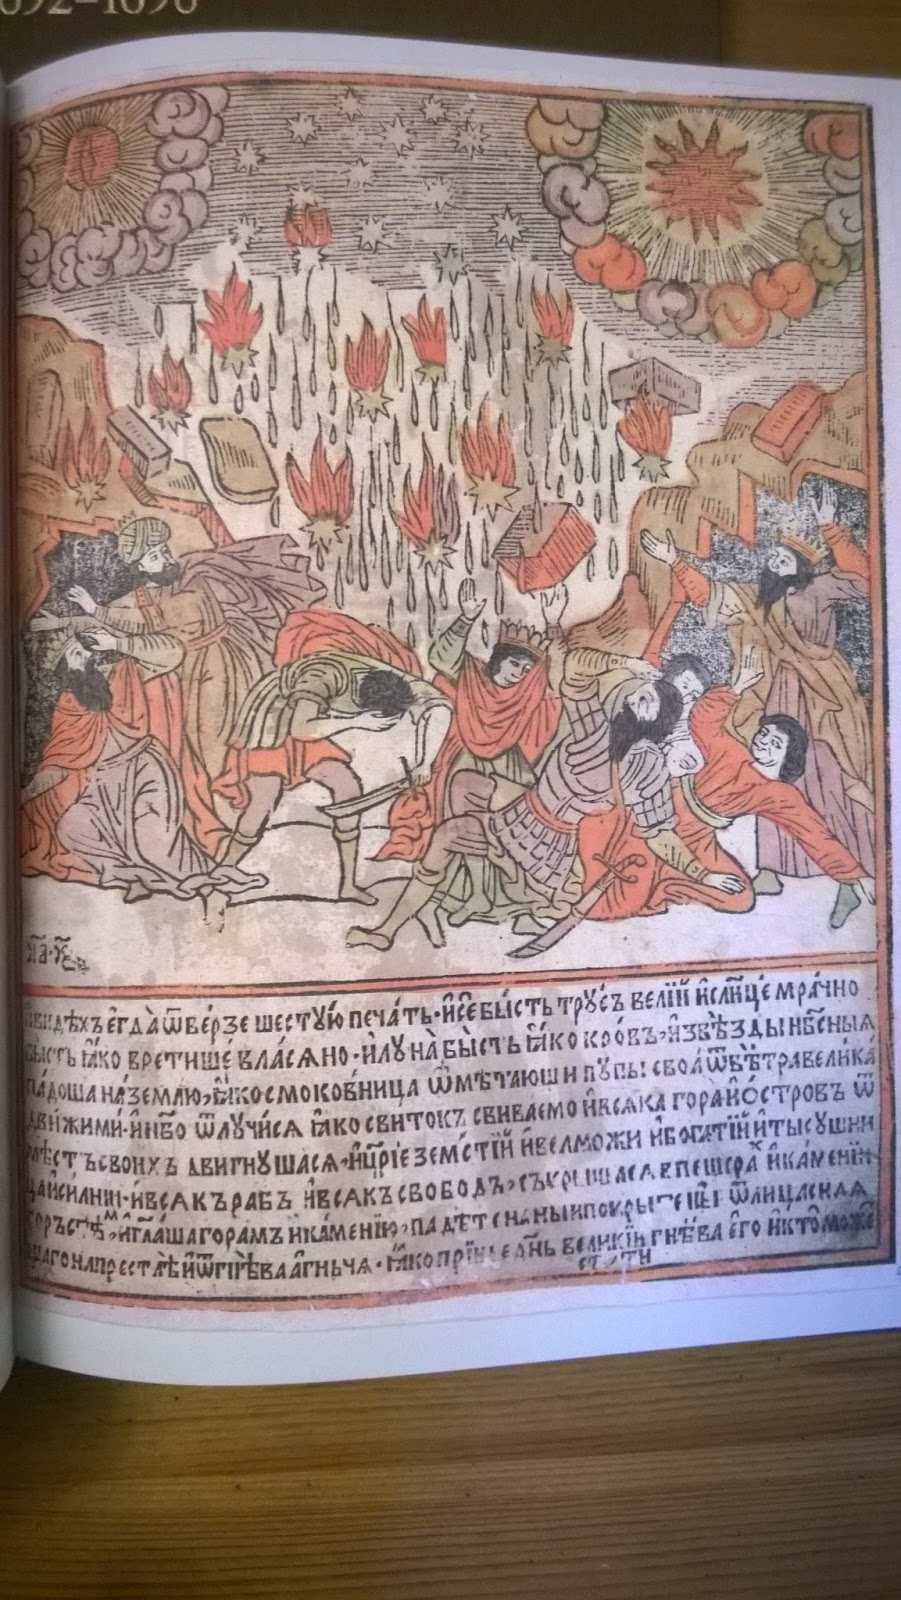 1692–1696
И҆ви́дѣхъ є҆гда̀ ѿве́рзе шестꙋ́ю печа́ть · и҆се̂ бы́сть трꙋ́съ вели́й и҆сл҃нце́ мра́чно
бы́сть ꙗ҆́ко вретище́ вла́сѧно · и҆лꙋна̀ бы́сть ꙗ҆́ко кро́въ · и҆ѕвѣ́зды нб҃сныѧ
падо́ша на́землю, ꙗ҆́коѡ смоко́вница ѿмѣта́ющи пꙋпы̀ своѧ̀ ѿвѣ́тра вели́ка
дви́жими · и҆не҃бо ѿлꙋчи́сѧ ꙗ҆́ко сви́токъ свива́емо и҆всѧ́ка гора̀ и҆о́стровъ ѿ
мѣ́стъ свои́хъ дви́гнꙋшасѧ · и҆цр҃іе зе́мстїй и҆велмо́жи и҆бога́тїй и҆ты́сꙋщни
цы̀ и҆си́лнїи · и҆всѧ́къ ра́бъ и҆всѧ́къ свобо́дъ, съкры́шасѧ впеще́рах и҆ка́менїи
го́рьстѣм, и҆гл҃аша гора́мъ и҆ка́менїю, паде́те на́ны и покры́те ны̀ ѿлица̀ сидѧ
щаго на прⷭ҇то́лѣ и҆ѿгнѣ́ва а҆́гньчѧ · ꙗ҆́ко прїи́де дн҃ь вели́кїй гнѣ́ва є҆го̀ и҆кто̀ мо́же
ст ти